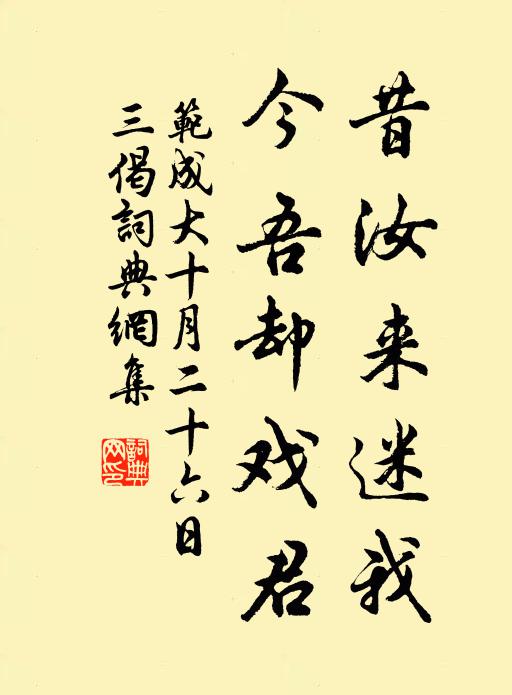 昔汝来迷我
今吾却戏君
範成大十月二十六日
三偈詞典網集
詞典网印